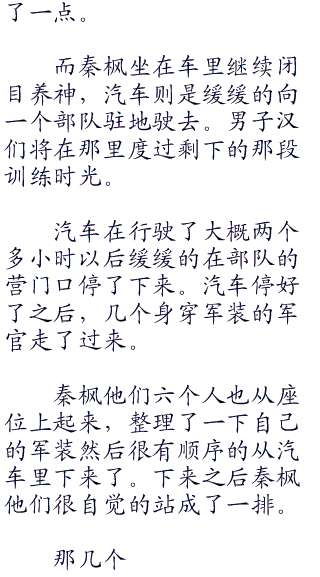 了一点。
而秦枫坐在车里继续闭
目养神，汽车则是缓缓的向
一个部队驻地驶去。男子汉
们将在那里度过剩下的那段
训练时光。
汽车在行驶了大概两个
多小时以后缓缓的在部队的
营门口停了下来。汽车停好
了之后，几个身穿军装的军
官走了过来。
秦枫他们六个人也从座
位上起来，整理了一下自己
的军装然后很有顺序的从汽
车里下来了。下来之后秦枫
他们很自觉的站成了一排。
那几个